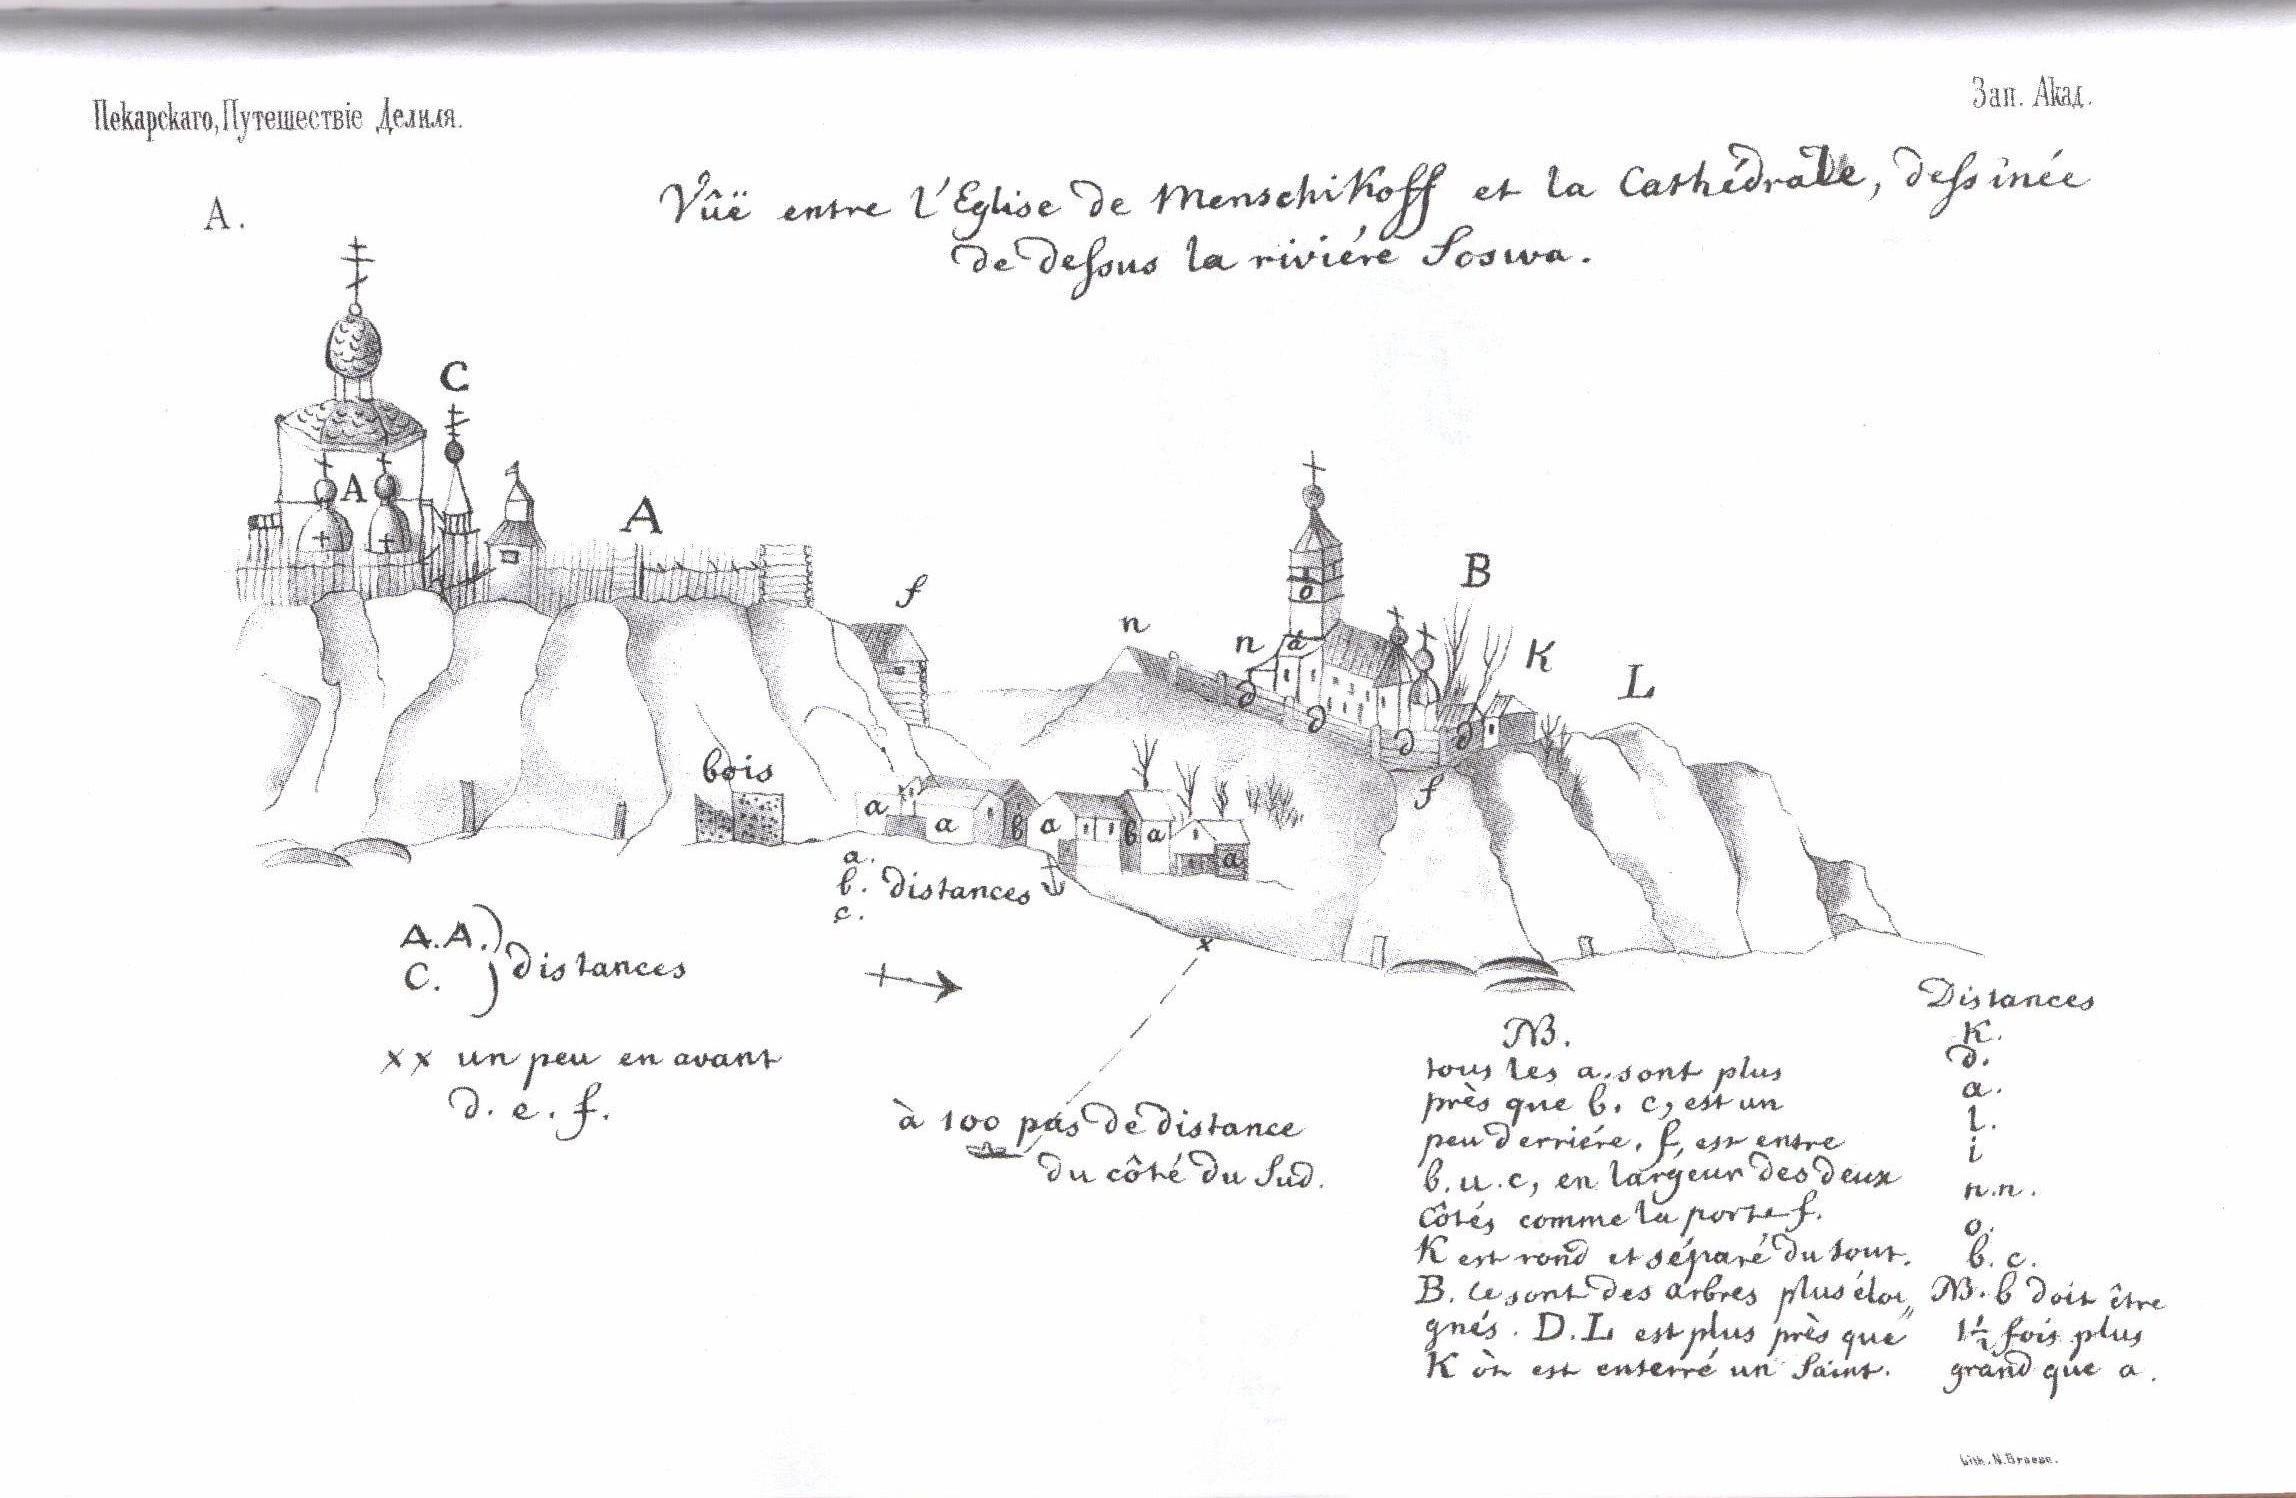 Пекарскаго, Путешествіе Делиля.
Зап. Акад.
A.
Vûë entre l'Eglise de Menschikoff et la Cathédrale, dessinée
de dessus la riviére Soswa.
C
A
A
f
B
n
n
o
d
K
L
d
d
d
d
f
bois
a
a
b
a
b
a
a
a.
b. distances
c.
A.A.)
C. ) distances
xx un peu en avant
d. e. f.
x
à 100 pas de distance
du côté du Sud.
NB.
tous les a. sont plus
près que b. c, est un
peu derriére. f, est entre
b. u. c, en largeur des deux
côtés comme la porte f.
K est rond et séparé du tout.
B. ce sont des arbres plus éloi„
gnés. D. L est plus près que
K òu est enterré un Saint.
Distances
K.
d.
a.
l.
i
n.n.
o.
b. c.
NB. b doit être
1½ fois plus
grand que a.